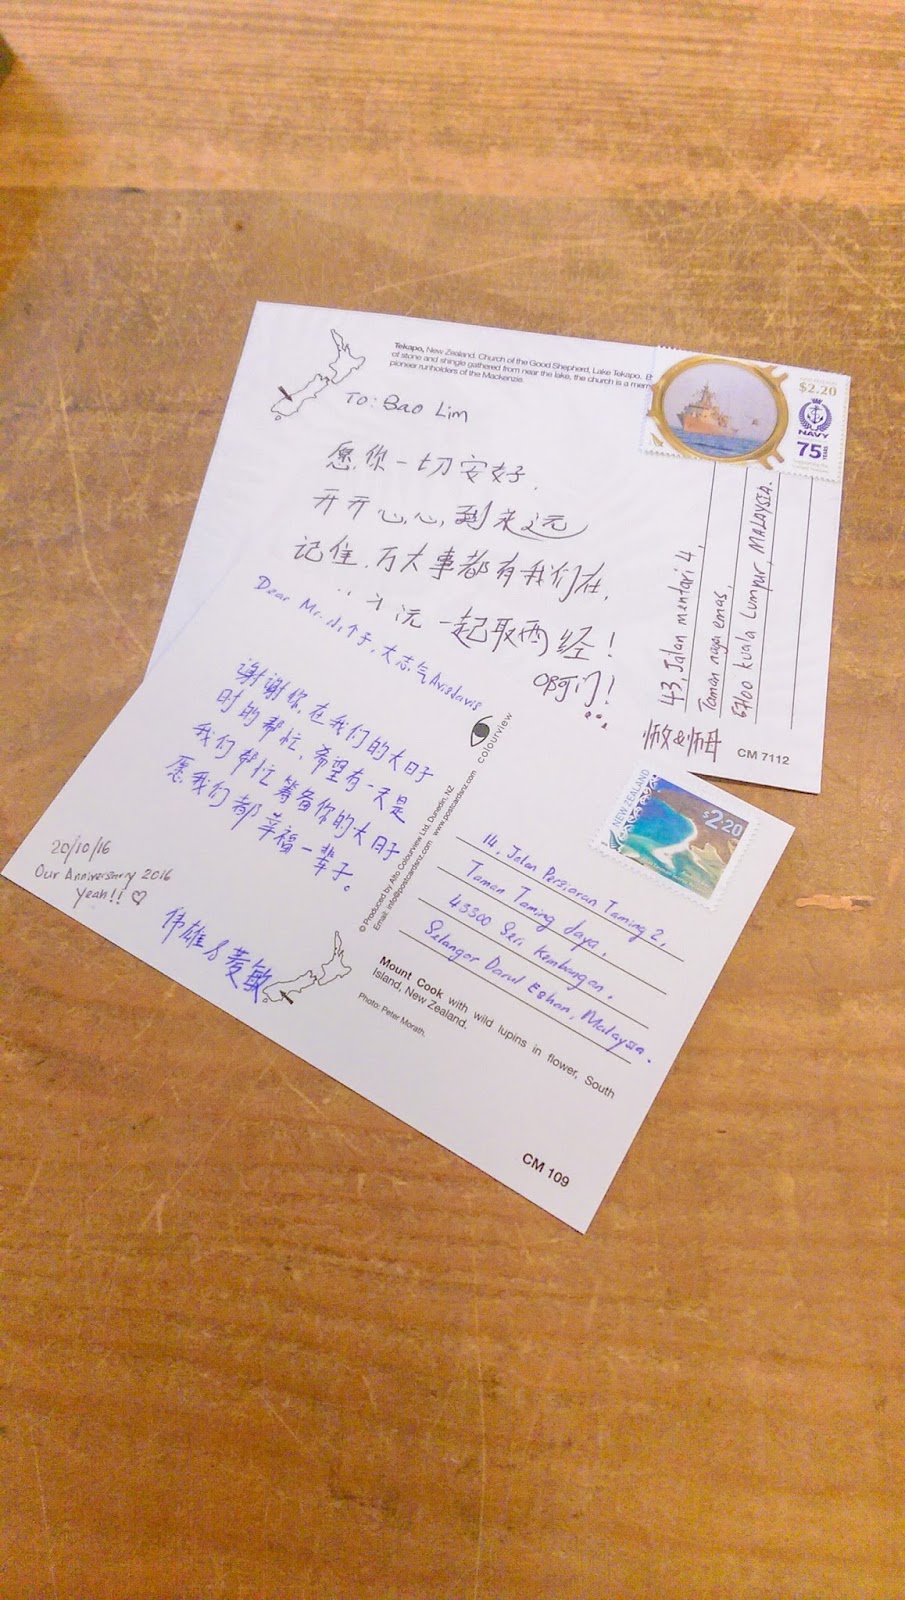 Tekapo, New Zealand. Church of the Good Shepherd, Lake Tekapo. B
of stone and shingle gathered from near the lake, the church is a mem
pioneer runholders of the Mackenzie.
TO: Bao Lim
愿你一切安好.
开开心心,到永远
记住,万大事都有我们在,
一起取西经!
啊门!...
$2.20
NAVY
75 YEARS
43, Jalan mentari 4,
Taman naga emas,
67100 Kuala Lumpur, MALAYSIA.
CM 7112
Dear Mr. 小个子,大志气 Avisdavis
谢谢你,在我们的大日子
时的帮忙,希望有一天是
我们帮忙筹备你的大日子
愿我们都幸福一辈子。
20/10/16
Our Anniversary 2016
Yeah!! ♡
伟雄&菱敏
colourview
© Produced by Alto Colourview Ltd, Dunedin, NZ
Email: info@postcardsnz.com www.postcardsnz.com
NEW ZEALAND
$2.20
14, Jalan Persiaran Taming 2,
Taman Taming Jaya,
43300 Seri Kembangan,
Selangor Darul Eshan, Malaysia.
Mount Cook with wild lupins in flower, South
Island, New Zealand.
Photo: Peter Morath.
CM 109